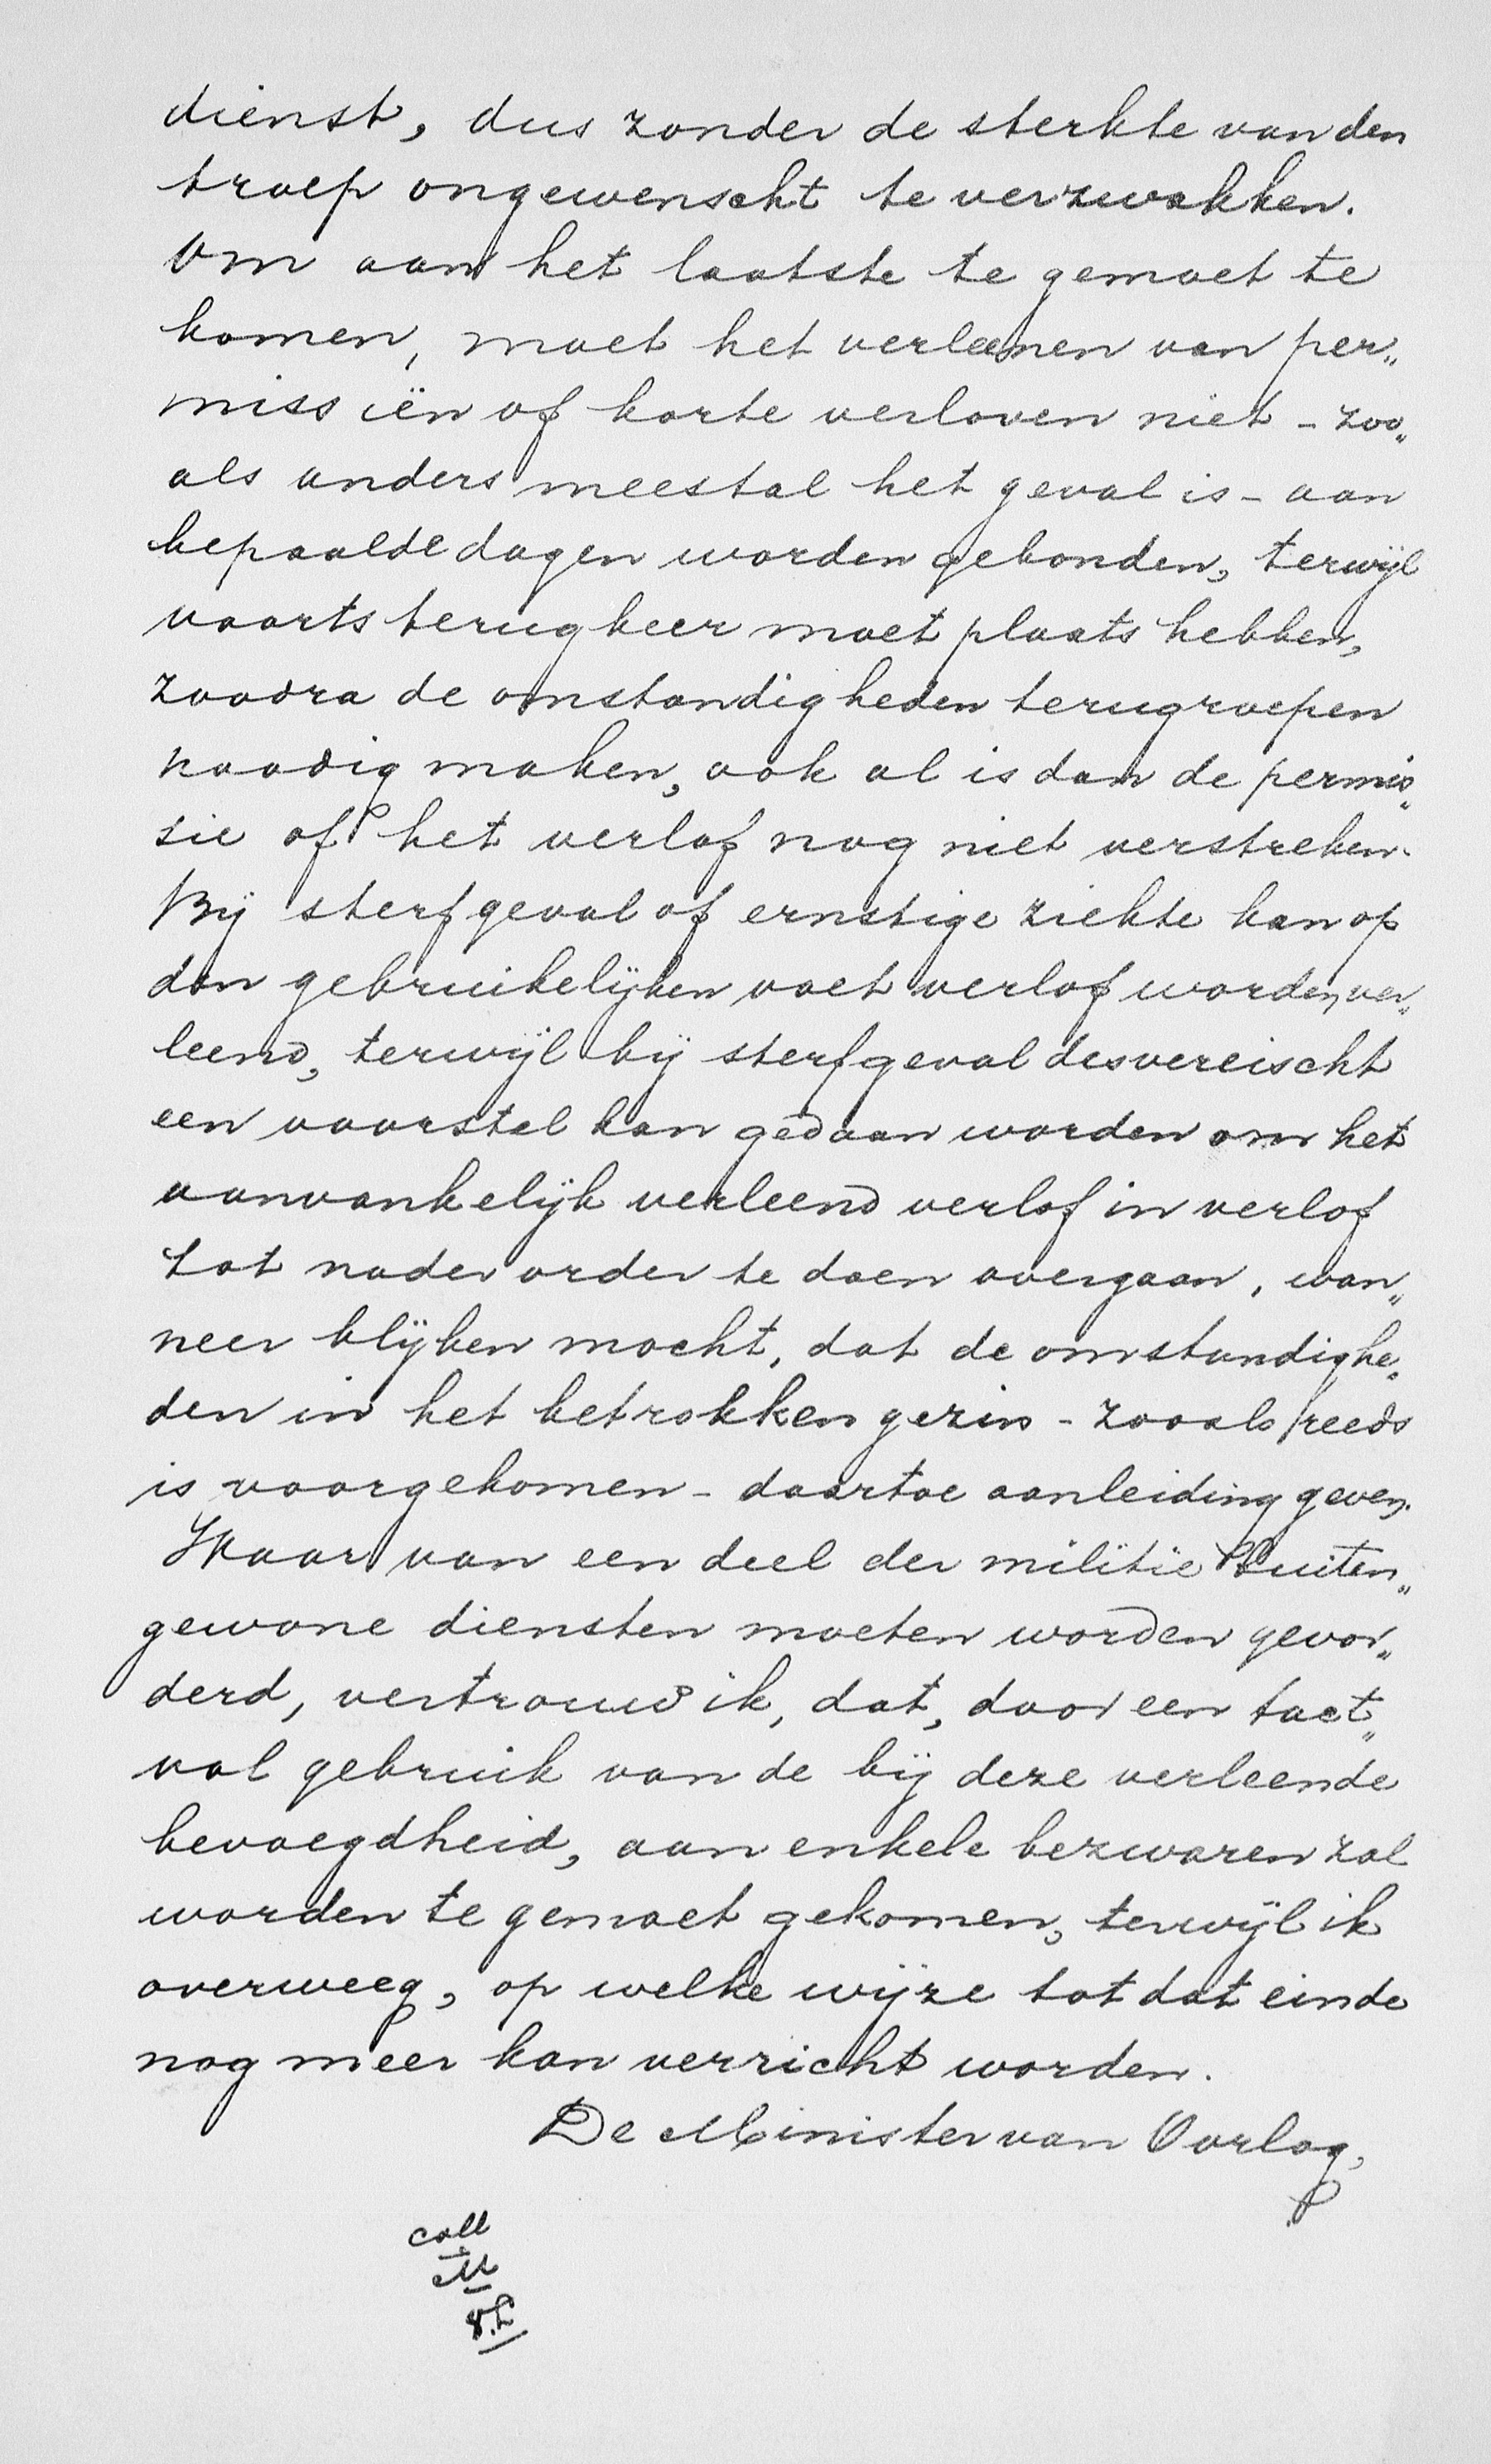 dienst, dus zonder de sterkte van den
troep ongewenscht te verzwakken.
Om aan het laatste te gemoet te
komen, moet het verleenen van per„
missiën of korte verloven niet - zoo„
als anders meestal het geval is - aan
bepaalde dagen worden gebonden, terwijl
voorts terugkeer moet plaats hebben,
zoodra de omstandigheden terugroepen
noodig maken, ook al is dan de permis„
sie of het verlof nog niet verstreken.
Bij sterfgeval of ernstige ziekte kan op
den gebruikelijken voet verlof worden ver„
leend, terwijl bij sterfgeval desvereischt
een voorstel kan gedaan worden om het
aanvankelijk verleend verlof in verlof
tot nader order te doen overgaan, wan„
neer blijken mocht, dat de omstandighe„
den in het betrokken gezin - zooals reeds
is voorgekomen - daartoe aanleiding geven.
Waar van een deel der militie buiten„
gewone diensten moeten worden gevor„
derd, vertrouw ik, dat, door een tact„
vol gebruik van de bij deze verleende
bevoegdheid, aan enkele bezwaren zal
worden te gemoet gekomen, terwijl ik
overweeg, op welke wijze tot dat einde
nog meer kan verricht worden.
De Minister van Oorlog,
coll
M